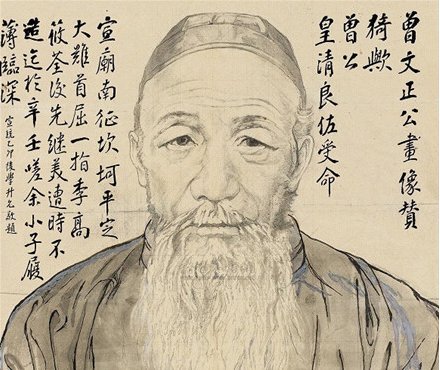 曾文正公畫像贊
猗歟
曾公
皇清良佐受命
宣廟南征坎坷平定
大難首屈一指李高
筱荃後先継美遭時不
造迄於辛壬嗟余小子履
薄臨深
宣統乙卯後學升允敬題